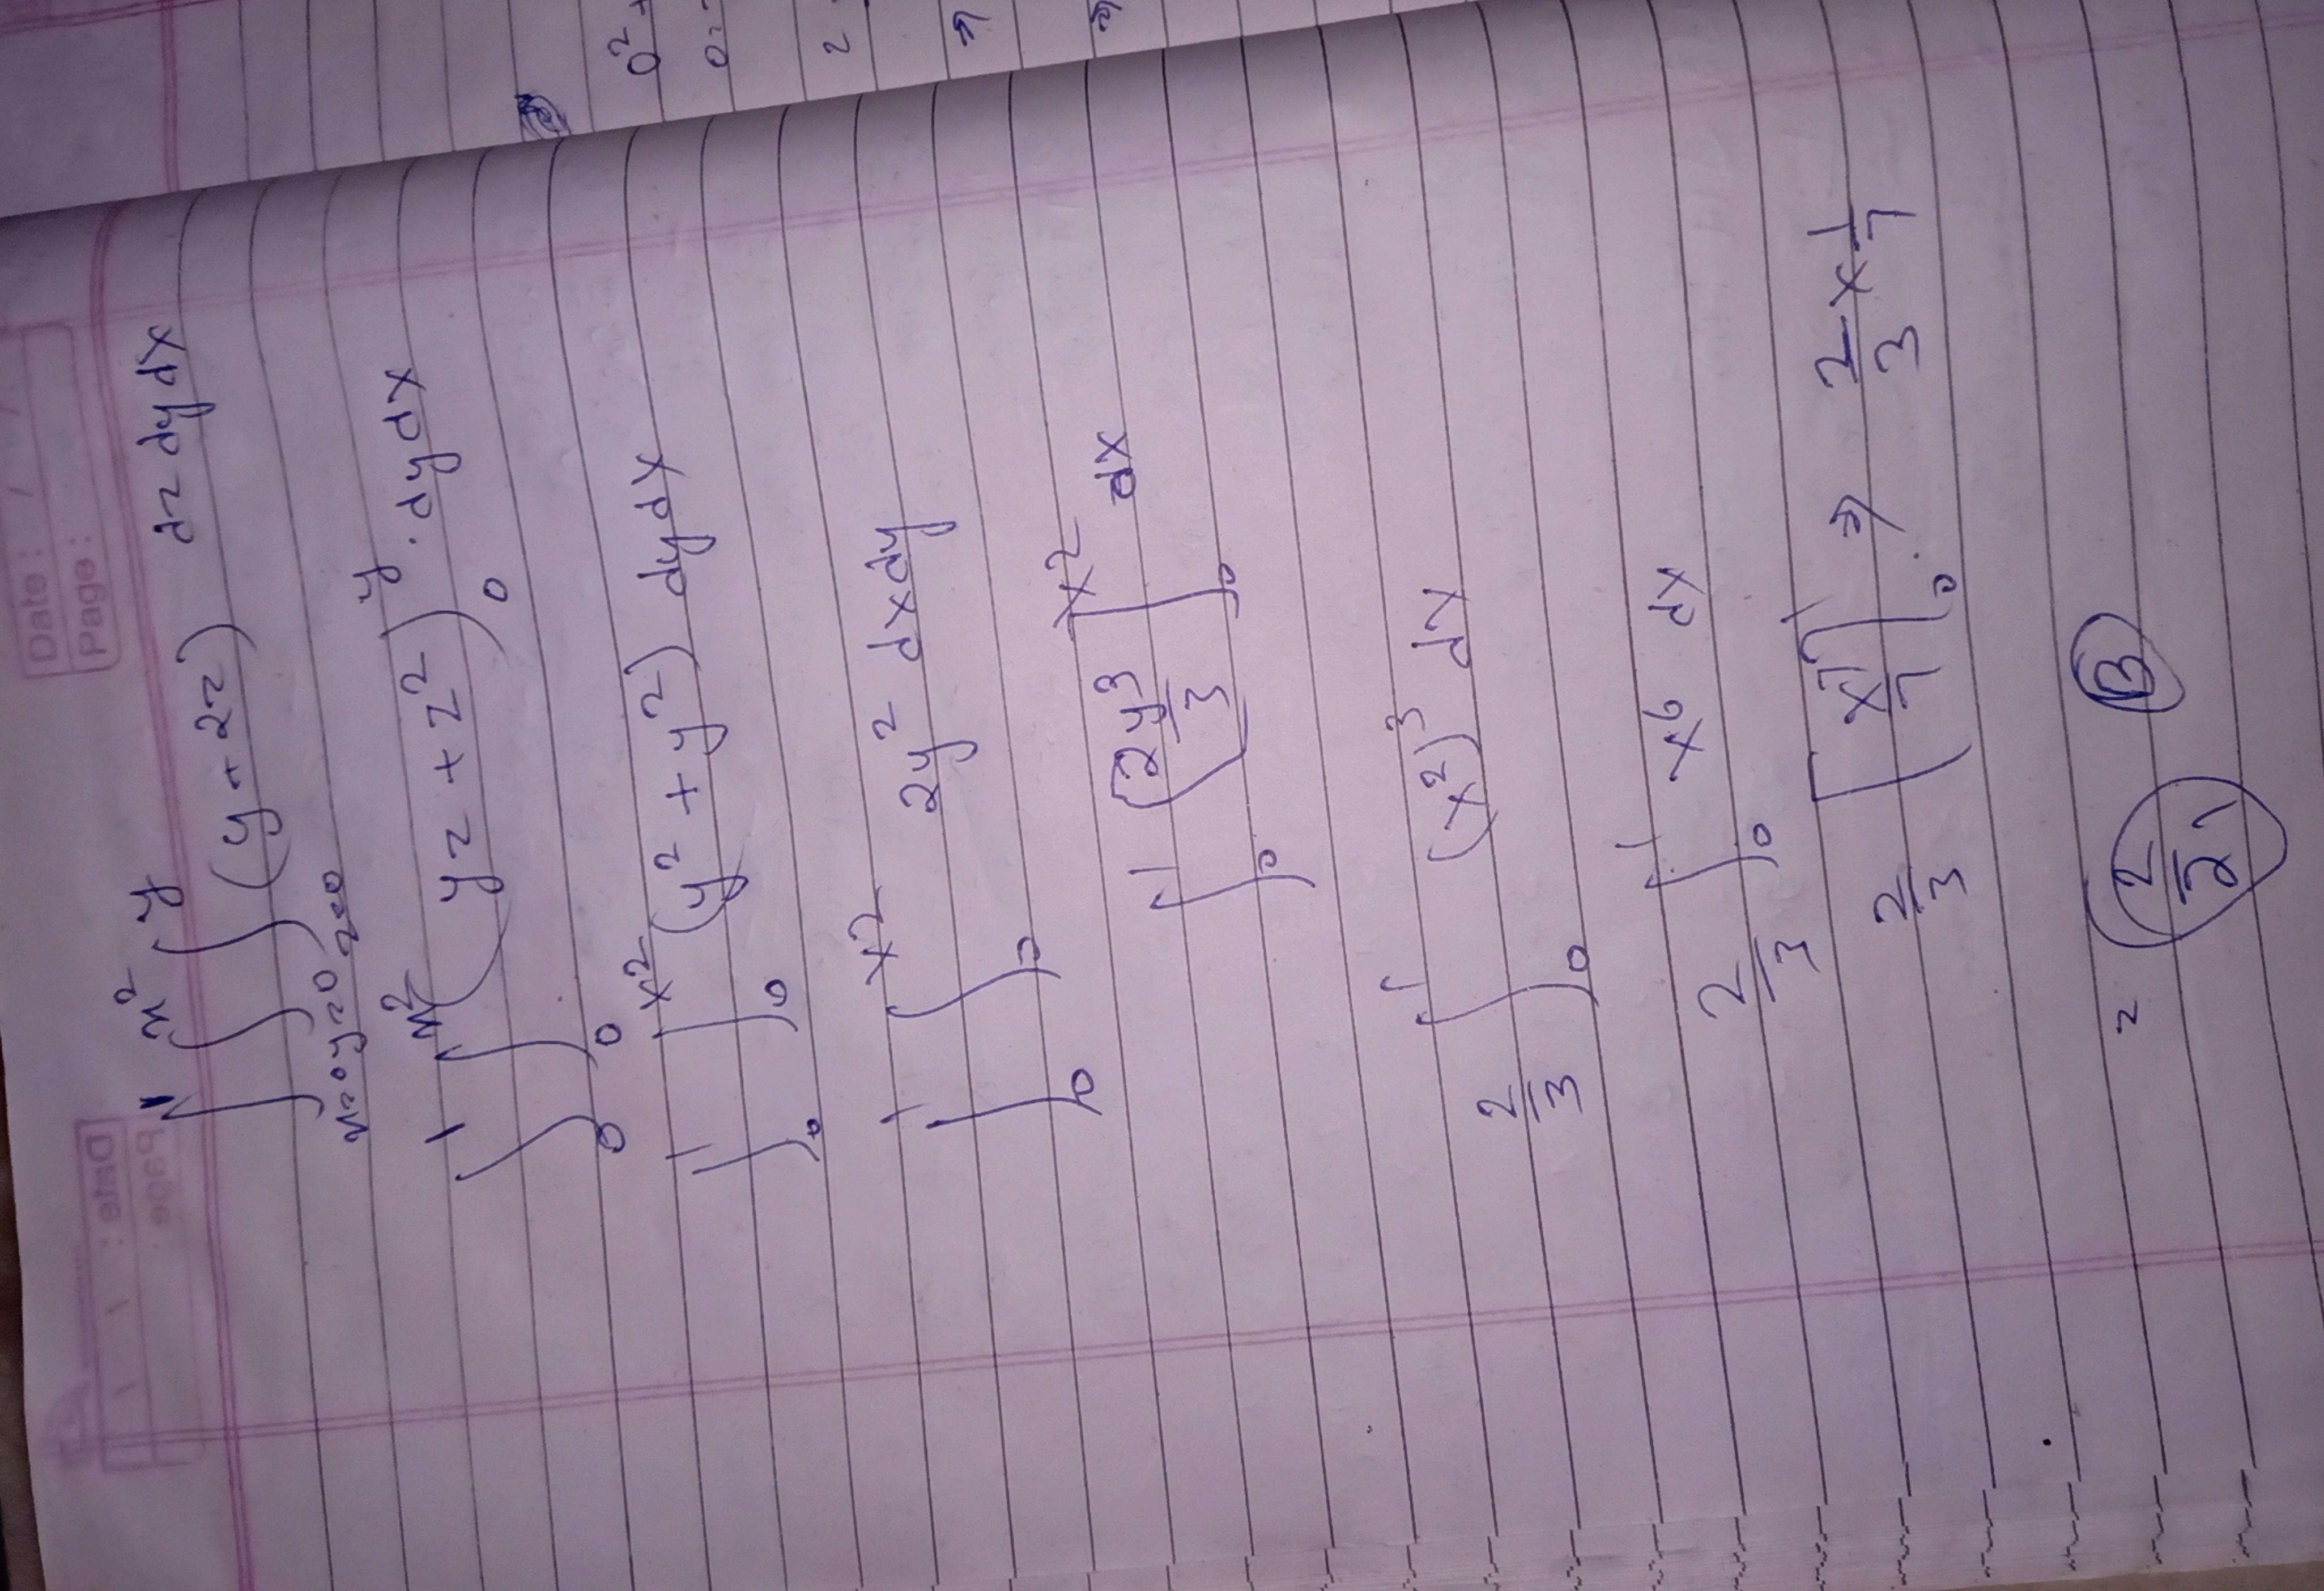 Date : / /
Page :
∫¹ₓ₌₀ ∫ˣ²ᵧ₌₀ ∫ʸ_z=0 (y + 2z) dz dy dx
∫₀¹ ∫₀ˣ² (yz + z²)₀ʸ . dy dx
∫₀¹ ∫₀ˣ² (y² + y²) dy dx
∫₀¹ ∫₀ˣ² 2y² dx dy
∫₀¹ [2y³/3]₀ˣ² dx
2/3 ∫₀¹ (x²)³ dx
2/3 ∫₀¹ x⁶ dx
2/3 [x⁷/7]₀¹ ⇒ 2/3 × 1/7
= 2/21 (B)